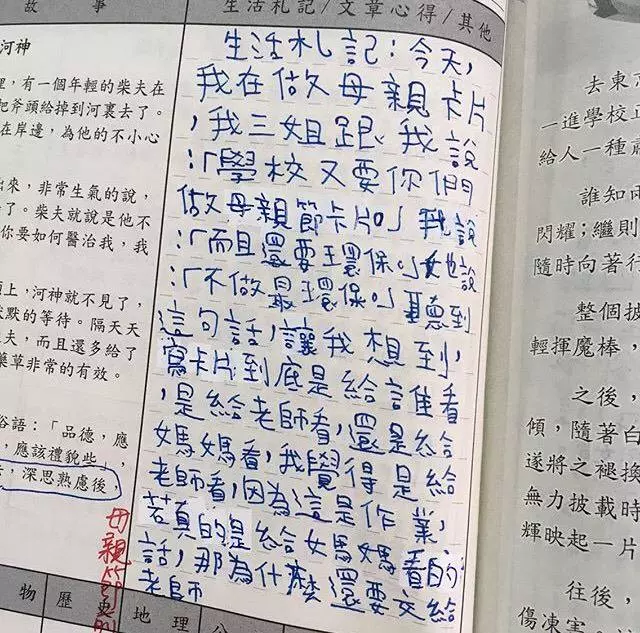 故 事
河神
,有一個年輕的柴夫在
把斧頭給掉到河裏去了。
在岸邊,為他的不小心
出來,非常生氣的說,
了。柴夫就說是他不
你要如何醫治我,我
上,河神就不見了,
默的等待。隔天天
夫,而且還多給了
藥草非常的有效。
俗語:「品德,應
,應該禮貌些」,
;深思熟慮後
母親節
生活札記/文章心得/其他
生活札記:今天,
我在做母親卡片
,我三姐跟我說
:「學校又要你們
做母親節卡片。」我說
:「而且還要環保。」她說
:「不做最環保。」聽到
這句話,讓我想到,
寫卡片到底是給誰看
,是給老師看,還是給
媽媽看,我覺得是給
老師看,因為這是作業,
若真的是給媽媽看的
話,那為什麼還要交給
老師
物 歷 史 地 理 公
去東
一進學校
給人一種
誰知
閃耀;繼則
隨時向著行
整個披
輕揮魔棒,
之後,
傾,隨著白
遂將之褪換
無力披載時
輝映起一片
往後,
傷凍害。